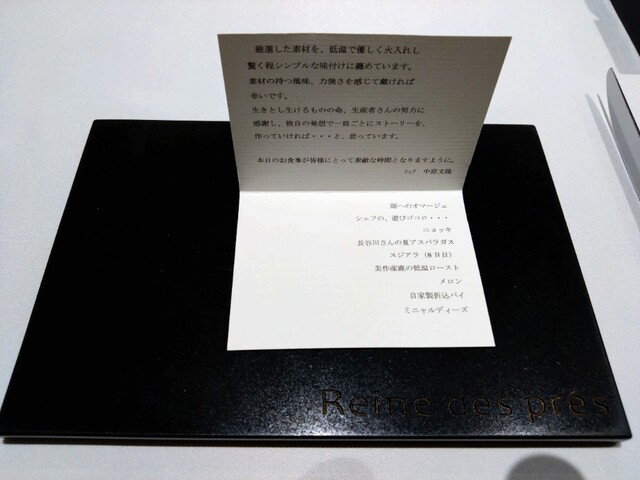 厳選した素材を、低温で優しく火入れし
驚く程シンプルな味付けに纏めています。
素材の持つ風味、力強さを感じて戴ければ
幸いです。
生きとし生けるものの命、生産者さんの努力に
感謝し、独自の発想で一皿ごとにストーリーを、
作っていければ・・・と、思っています。
本日のお食事が皆様にとって素敵な時間となりますように。
シェフ 中原文隆
師へのオマージュ
シェフの、遊びゴコロ・・・
ニョッキ
長谷川さんの夏アスパラガス
スジアラ（8日目）
美作産鹿の低温ロースト
メロン
自家製折込パイ
ミニャルディーズ
Reine des prés